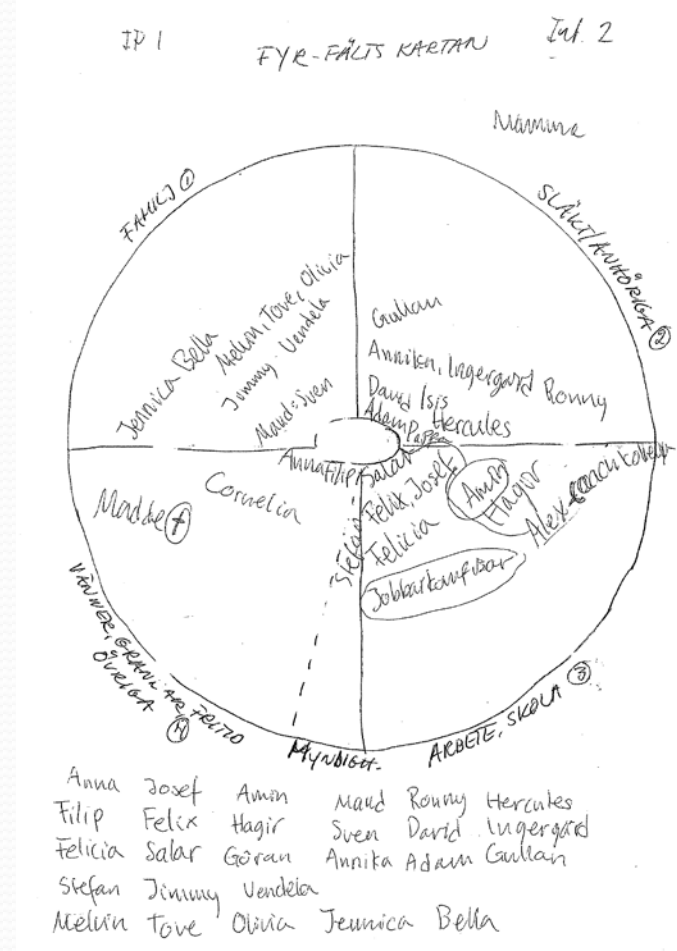 IP 1
Int. 2
FYR-FÄLTS KARTAN
Mamma
FAMILJ ①
SLÄKT/ANHÖRIGA ②
Melvin, Tove, Olivia
Jennica Bella
Jimmy Vendela
Maud Sven
Gullan
Annika, Ingergärd Ronny
David Isis
Adam
Hercules
Anna Filip Salar
Cornelia
Madde
Stefan
Felix, Josef
Felicia
Amin
Hagir
Alex
Jobbarkompisar
VÄNNER, GRANNAR, FRITID
ÖVRIGA ④
MYNDIGH-
ARBETE, SKOLA ③
Anna Josef Amin Maud Ronny Hercules
Filip Felix Hagir Sven David Ingergärd
Felicia Salar Göran Annika Adam Gullan
Stefan Jimmy Vendela
Melvin Tove Olivia Jennica Bella